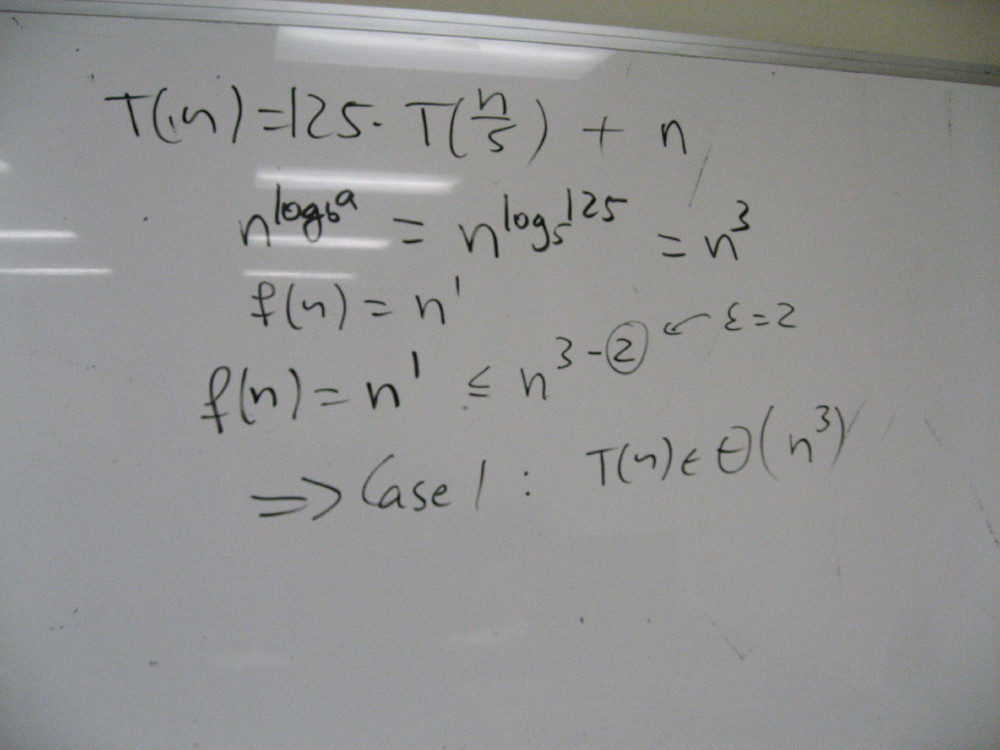 T(n) = 125 · T(n/5) + n
n^log_b a = n^log_5 125 = n^3
f(n) = n^1
f(n) = n^1 ≤ n^3-② ← ε = 2
⇒ Case 1 : T(n) ∈ Θ(n^3)